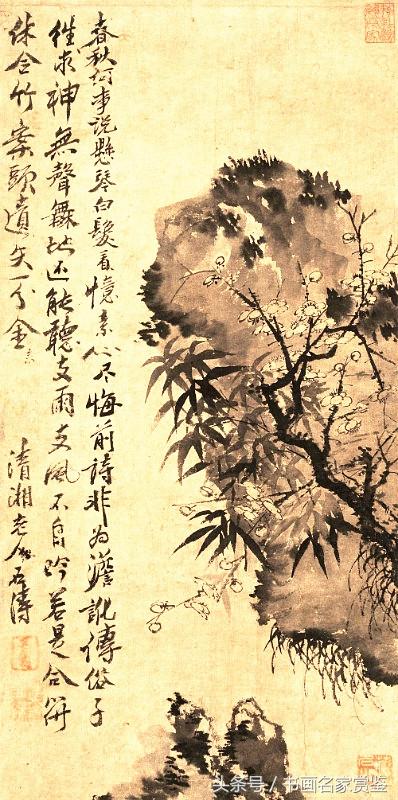 春秋何事說懸琴白髮看憶素心尽悔前詩非為澹訛傳俗子
継求神無聲無地还能聽支雨支風不自吟若是合開
休合竹案頭遺失一分金
清湘老人石濤
头条号 / 书画名家赏鉴